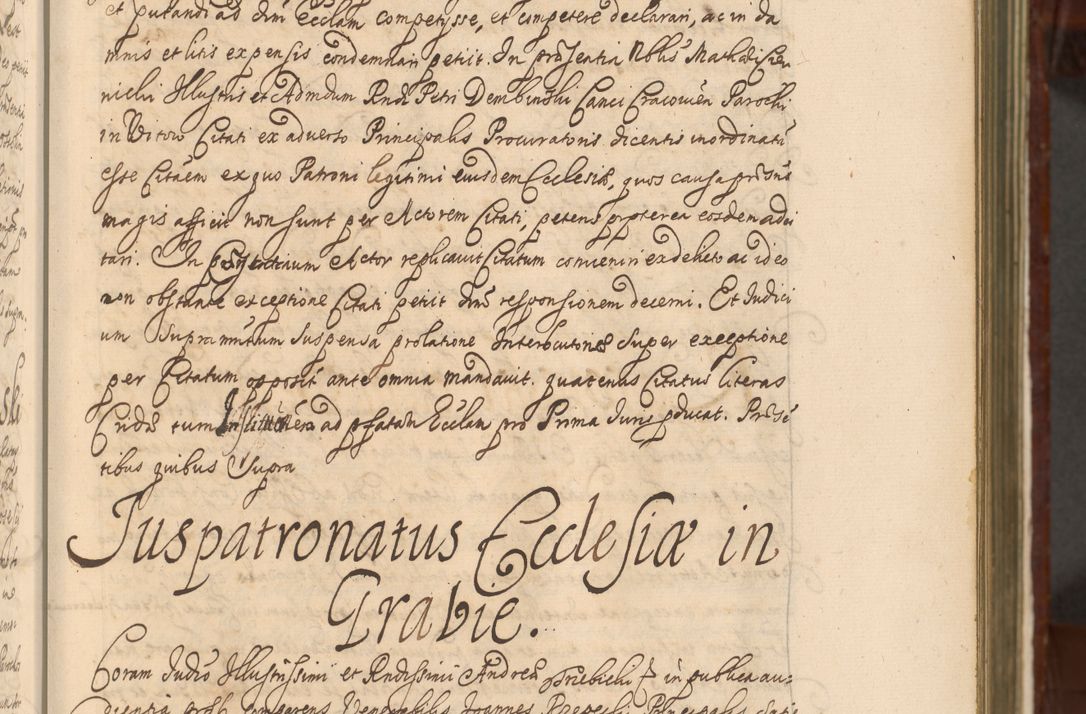 et putandi ad dnī Ecclam competysse, et competere declarari, ac in da
mnis et litis expensis condemnari petiit. In prsentia Nblis Mathei Sien
nichi Illustris et Admdum Rndi Petri Dembinski Canci Cracovien Parochi
in Witow Citati ex adverso Principalis Procuratoris dicentis inordinatu
esse Citaem ex quo Patroni legitimi eiusdem Ecclesiæ, quos causa prsns
magis afficit non sunt per Actorem Citati, petens propterea eosdem adci
tari. In Actor replicavit Citatum conveniri ex debito ac ideo
non obstante exceptione Citati petiit dnī responsionem decerni. Et Judici
um Supramnūtum suspensa prolatione Interlocutoriæ super exceptione
per Citatum opposit ante omnia mandavit. quatenus Citatus literas
tum ad pfatam Ecclam pro Prima Juris pducat. Prsē
tibus quibus Supra
Juspatronatus Ecclesiæ in
Grabie.
Coram Judio Illustrissimi et Rndissimi Andreæ Trzebicki in publica au=
dientia comparens Venerabilis Joannes Principalis